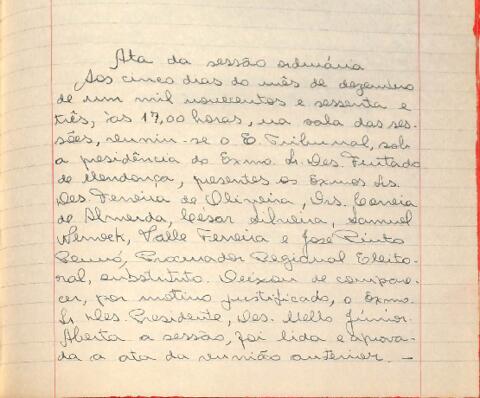 Ata da sessão ordinária
Aos cinco dias do mês de dezembro
de um mil novecentos e sessenta e
três, às 17,00 horas, na sala das ses-
sões, reuniu-se o E. Tribunal, sob
a presidência do Exmo. Sr. Des. Furtado
de Mendonça, presentes os Exmos Srs.
Des. Ferreira de Oliveira, Drs. Correia
de Almeida, César Silveira, Samuel
Werneck, Valle Ferreira e José Pinto
Procurador Regional Eleito-
ral, substituto. Deixou de compare-
cer, por motivo justificado, o Exmo.
Sr. Des. Presidente, Des. Mello Júnior.
Aberta a sessão, foi lida e aprova-
da a ata da reunião anterior. —